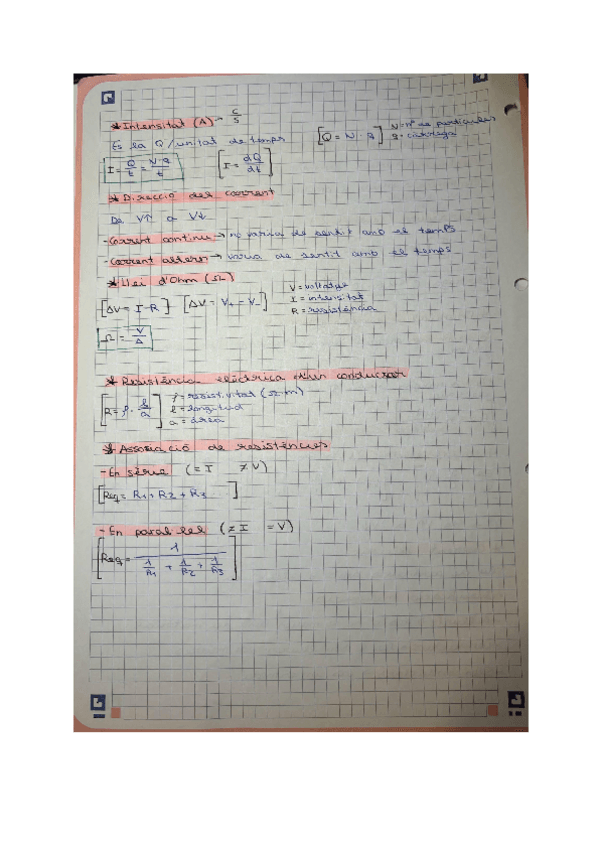 * Intensitat (A) → C/S
Es la Q / unitat de temps
[Q = N · q] N = nº de partícules
q = càrrega
I = Q/t = N·q/t [I = dQ/dt]
* Direcció del corrent
De V↑ a V↓
- Corrent continu → no varia de sentit amb el temps
- Corrent altern → varia de sentit amb el temps
* Llei d'Ohm (Ω)
[ΔV = I · R] [ΔV = V+ - V-] V = voltatge
I = intensitat
R = resistència
Ω = V/A
* Resistència elèctrica d'un conductor
[R = ρ · l/a] ρ = resistivitat (Ω·m)
l = longitud
a = àrea
* Associació de resistències
- En sèrie (= I ≠ V)
[Req = R1 + R2 + R3]
- En paral·lel (≠ I = V)
[Req = 1/(1/R1 + 1/R2 + 1/R3)]